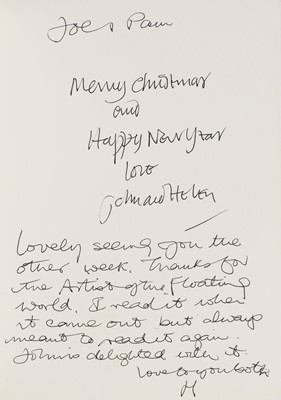 Joe & Pam
Merry Christmas
and
Happy New Year
love
John and Helen
Lovely seeing you the
other week. Thanks for
the Artist of the Floating
World. I read it when
it came out but always
meant to read it again.
John is delighted with it.
Love to you both
H